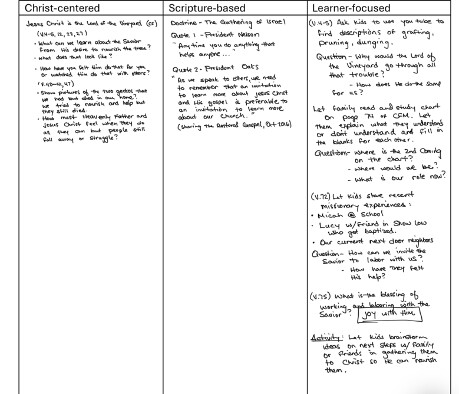 Christ-centered
Scripture-based
Learner-focused
Jesus Christ is the Lord of the Vineyard (cc)
• What can we learn about the Savior
from His desire to nourish the trees?
• What does that look like?
• How have you felt Him do that for you
or watched Him do that with others?
• Show pictures of the two gardens that
we had that died in our home.
we tried to nourish and help but
they still died.
• How must Heavenly Father and
Jesus Christ feel when they do
all they can but people still
fall away or struggle?
Doctrine - The Gathering of Israel
Quote 1 - President Nelson
"Anytime you do anything that
helps anyone...
Quote 2 - President Oaks
"As we speak to others, we need
to remember that an invitation
to learn more about Jesus Christ
and His gospel is preferable to
an invitation to learn more
about our Church."
(Sharing the Restored Gospel, Oct 2016)
Ask kids to use youtube to
find descriptions of grafting,
pruning, dunging.
Question - Why would the Lord of
the Vineyard go through all
that trouble?
- How does He do the same
for us?
Let family read and study chart
on page 74 of CSM. Let
them explain what they understand
or don't understand and fill in
the blanks for each other.
Question - Where is the 2nd Coming
on the chart?
- Where would we be?
- What is our role now?
(v. 72) Let kids share recent
missionary experiences:
• Micah @ School
• Lucy w/ Friend in Show Low
who got baptized.
• Our current next door neighbors
Question - How can we invite the
Savior to labor with us?
- How have they felt
His help?
(v. 75) What is the blessing of
working and laboring with the
Savior? Joy with Him
Activity: Let kids brainstorm
ideas on next steps w/ Family
or Friends in gathering them
to Christ so He can nourish
them.